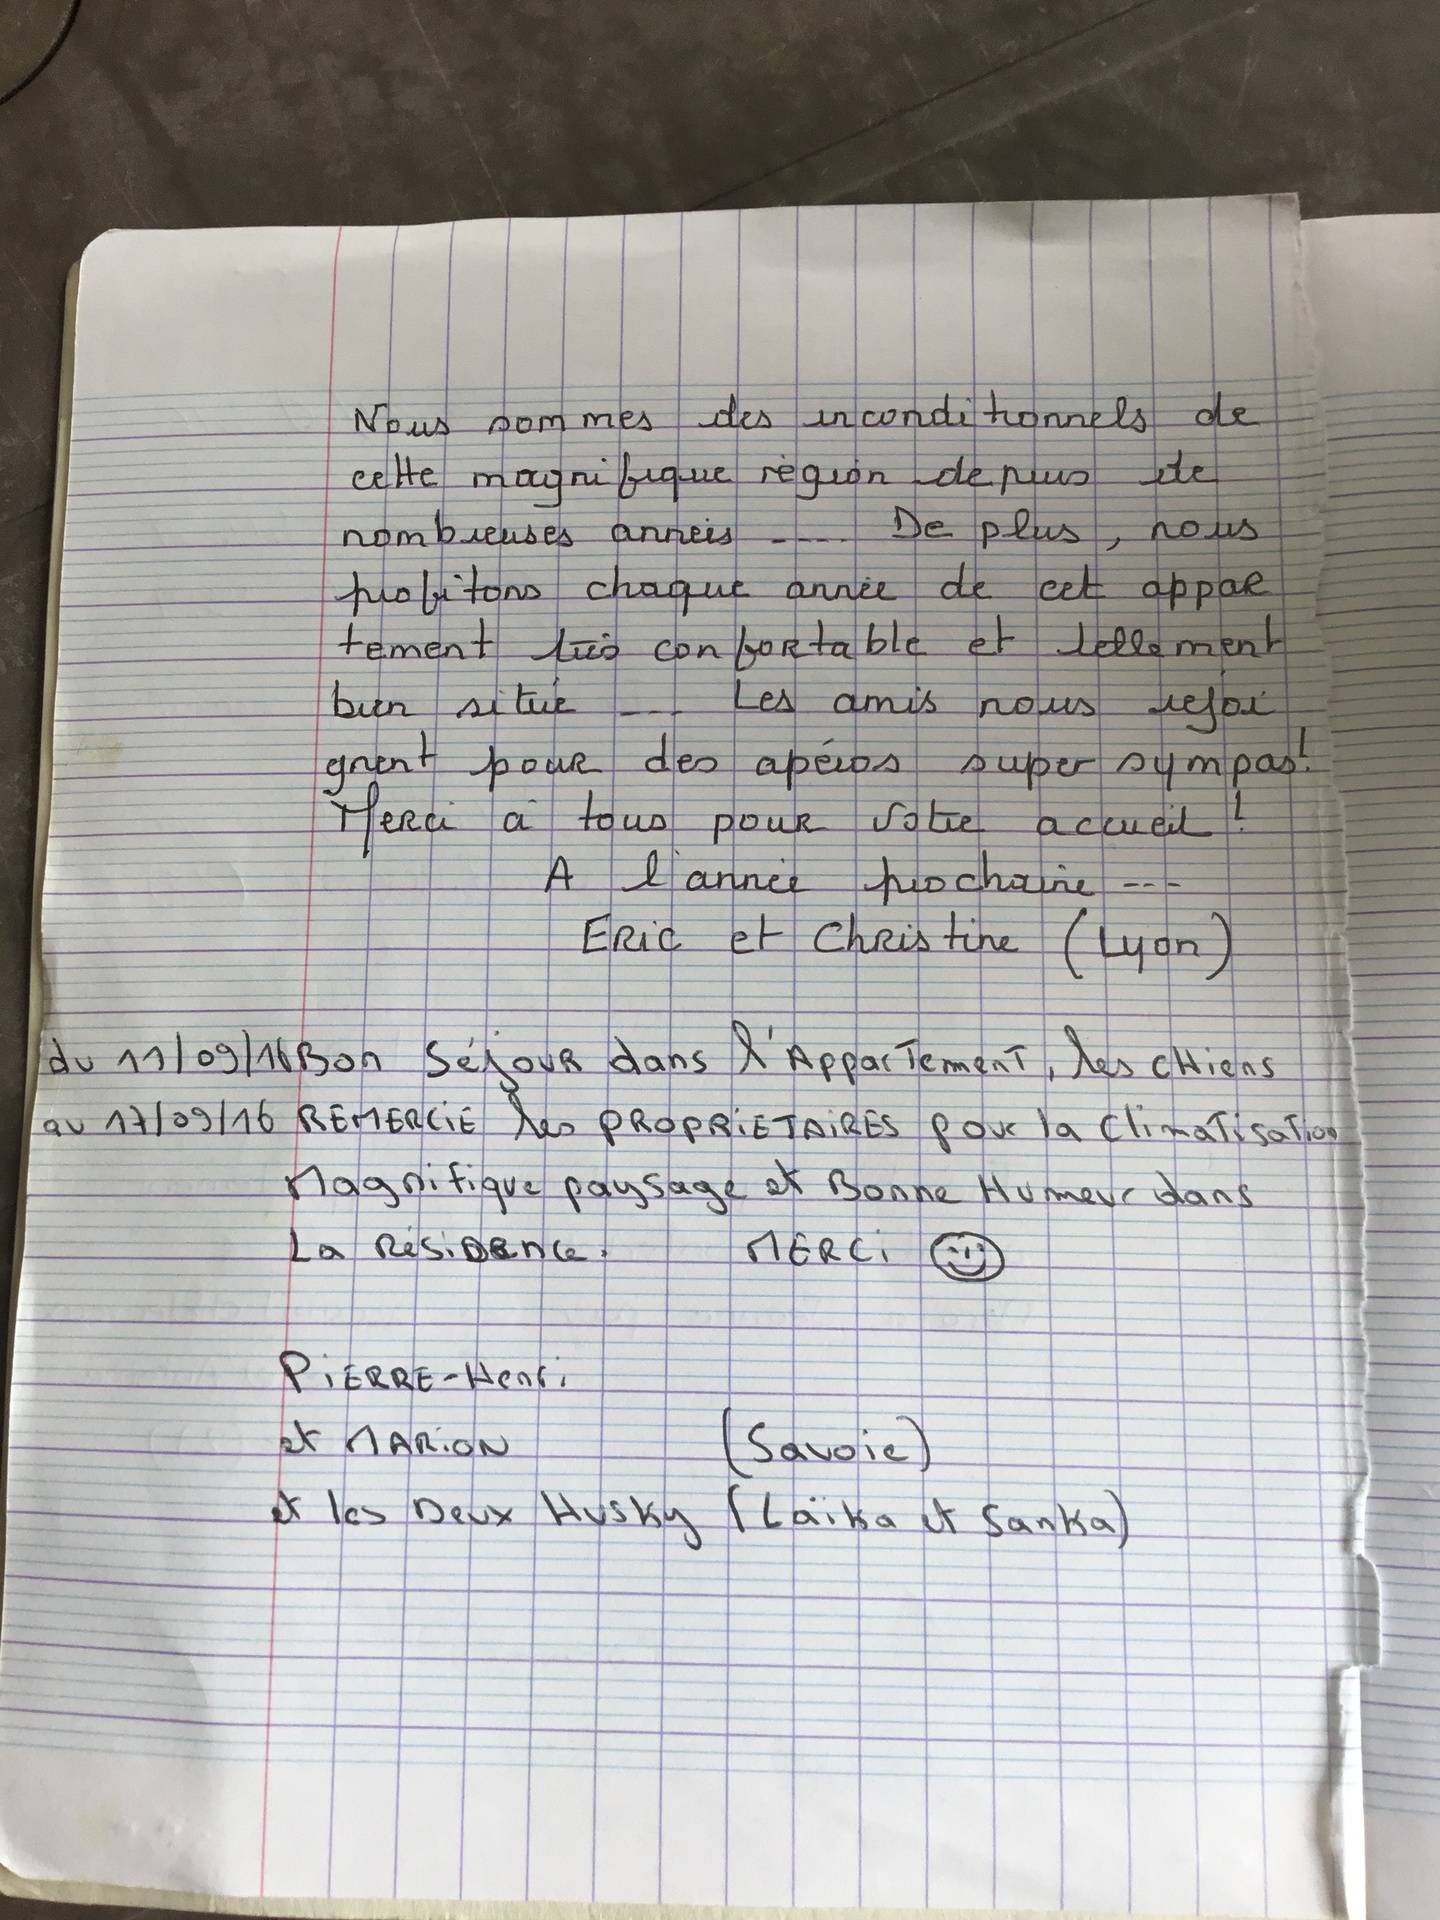 Nous sommes des inconditionnels de
cette magnifique région depuis de
nombreuses années .... De plus, nous
profitons chaque année de cet appar
tement très confortable et tellement
bien situé ... Les amis nous rejoi
gnent pour des apéros super sympas!
Merci à tous pour votre accueil!
A l'année prochaine ---
Eric et Christine (Lyon)
du 11/09/16 Bon Séjour dans l'Appartement, les chiens
au 17/09/16 REMERCIE les PROPRIETAIRES pour la Climatisation
Magnifique paysage et Bonne Humeur dans
La Résidence. MERCi
PiERRE-Henri
et MARiON (Savoie)
et les Deux Husky (Laïka et Sanka)